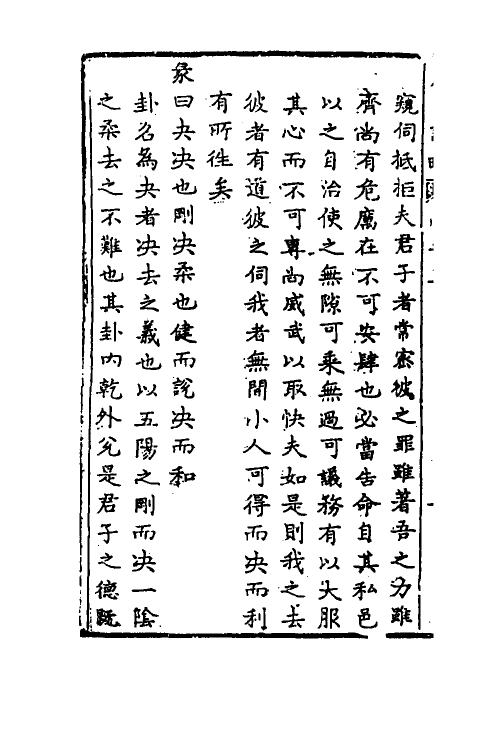 窺伺抵拒夫君子者常密彼之罪雖著吾之力雖
齊尚有危厲在不可安肆也必當告命自其私邑
以之自治使之無隙可乘無過可議務有以大服
其心而不可專尚威武以取快夫如是則我之去
彼者有道彼之伺我者無間小人可得而夬而利
有所往矣
彖曰夬决也剛决柔也健而說决而和
卦名為夬者决去之義也以五陽之剛而决一陰
之柔去之不難也其卦内乾外兌是君子之德既